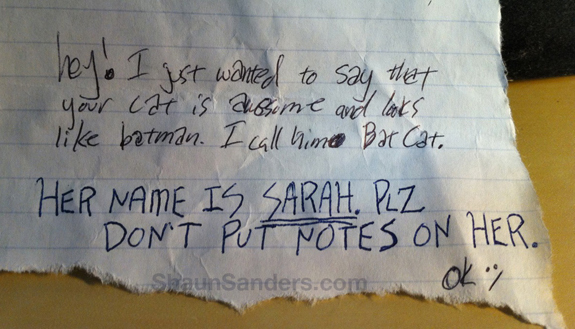 hey! I just wanted to say that
your cat is awesome and looks
like batman. I call him Bat Cat.
HER NAME IS SARAH. PLZ
DON'T PUT NOTES ON HER.
OK :/
ShaunSanders.com